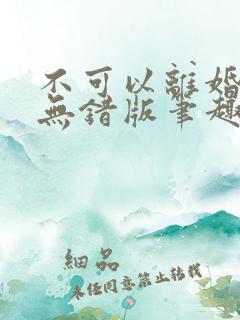 不可以離婚
無錯版筆趣
細品
未經同意禁止轉載